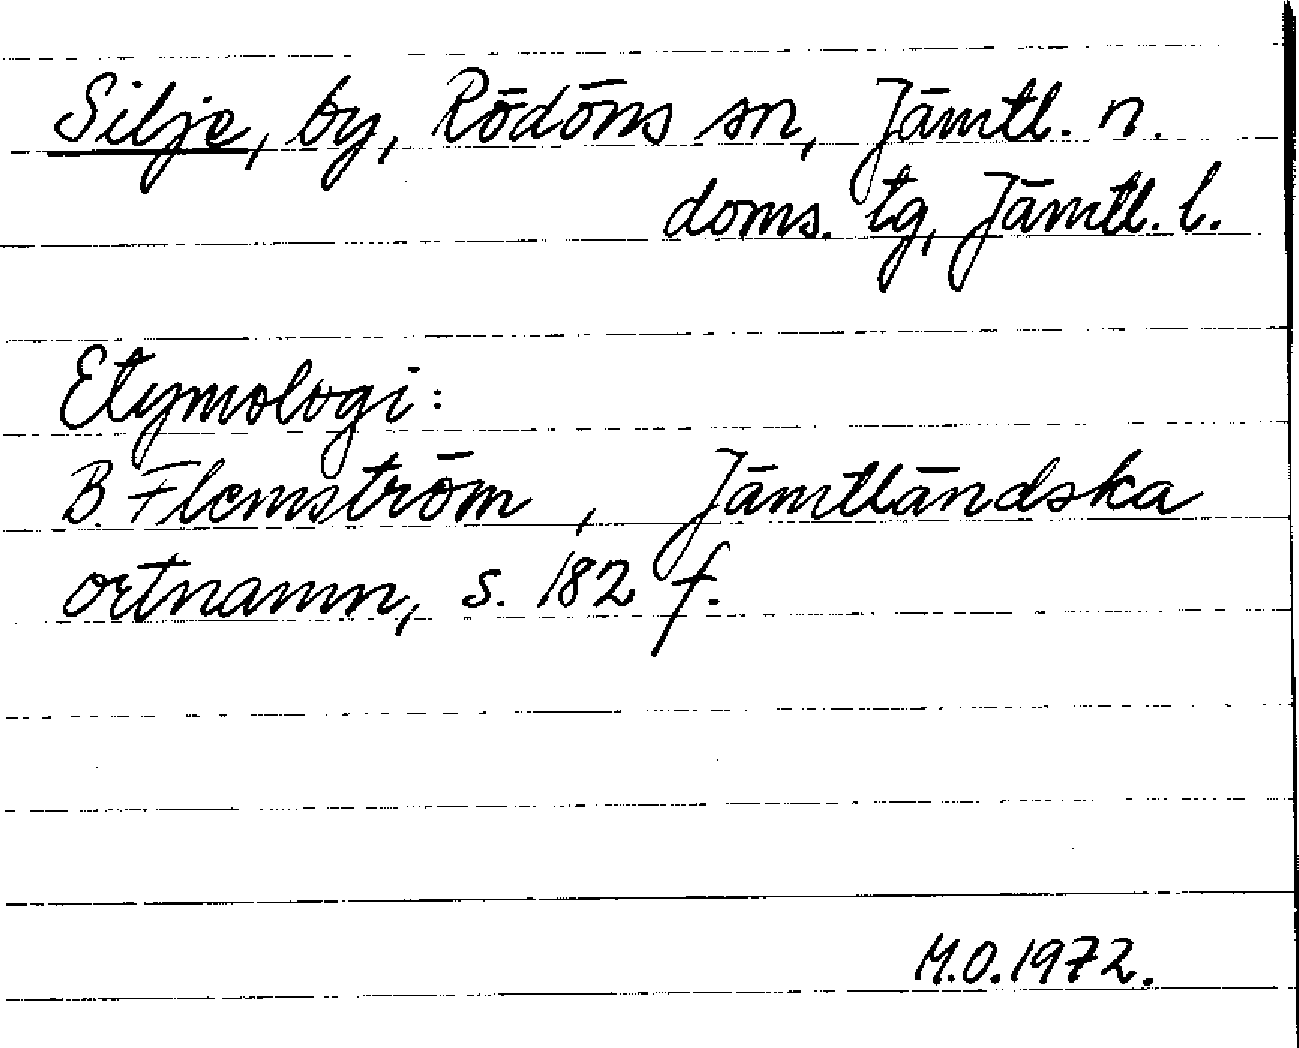 Silje, by, Rödöns sn, Jämtl. n.
doms. tg, Jämtl. l.
Etymologi:
B. Flemström, Jämtländska
ortnamn, s. 182 f.
M.O. 1972.